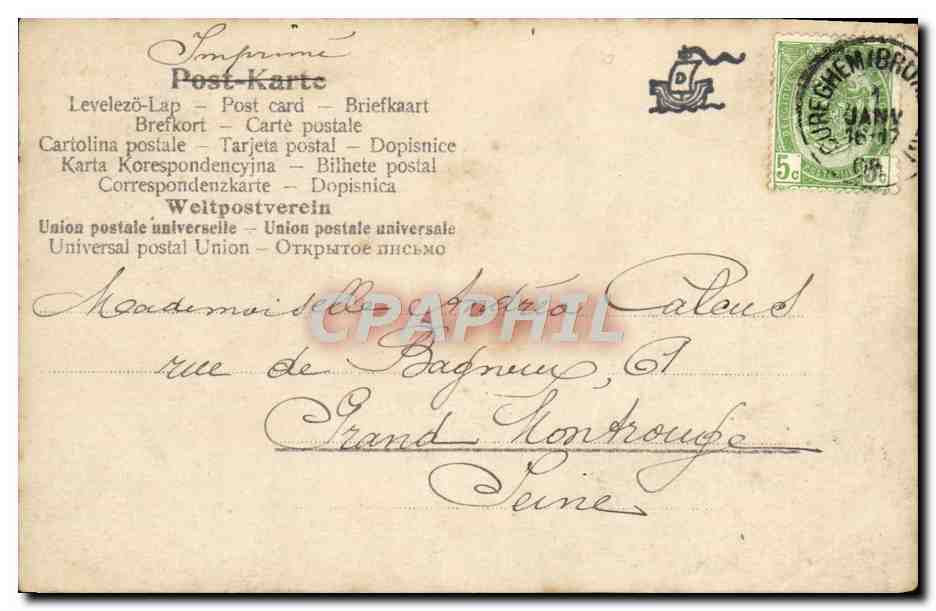 Imprimé
Post-Karte
Levelező-Lap – Post card – Briefkaart
Brefkort – Carte postale
Cartolina postale – Tarjeta postal – Dopisnice
Karta Korespondencyjna – Bilhete postal
Correspondenzkarte – Dopisnica
Weltpostverein
Union postale universelle – Union postale universale
Universal postal Union – Открытое письмо
D
CUREGHEM (BRUX
1
JANV
16-17
5c 5c
Mademoiselle Andréa Calcus
rue de Bagneux, 61
Grand Montrouge
Seine
CPAPHIL